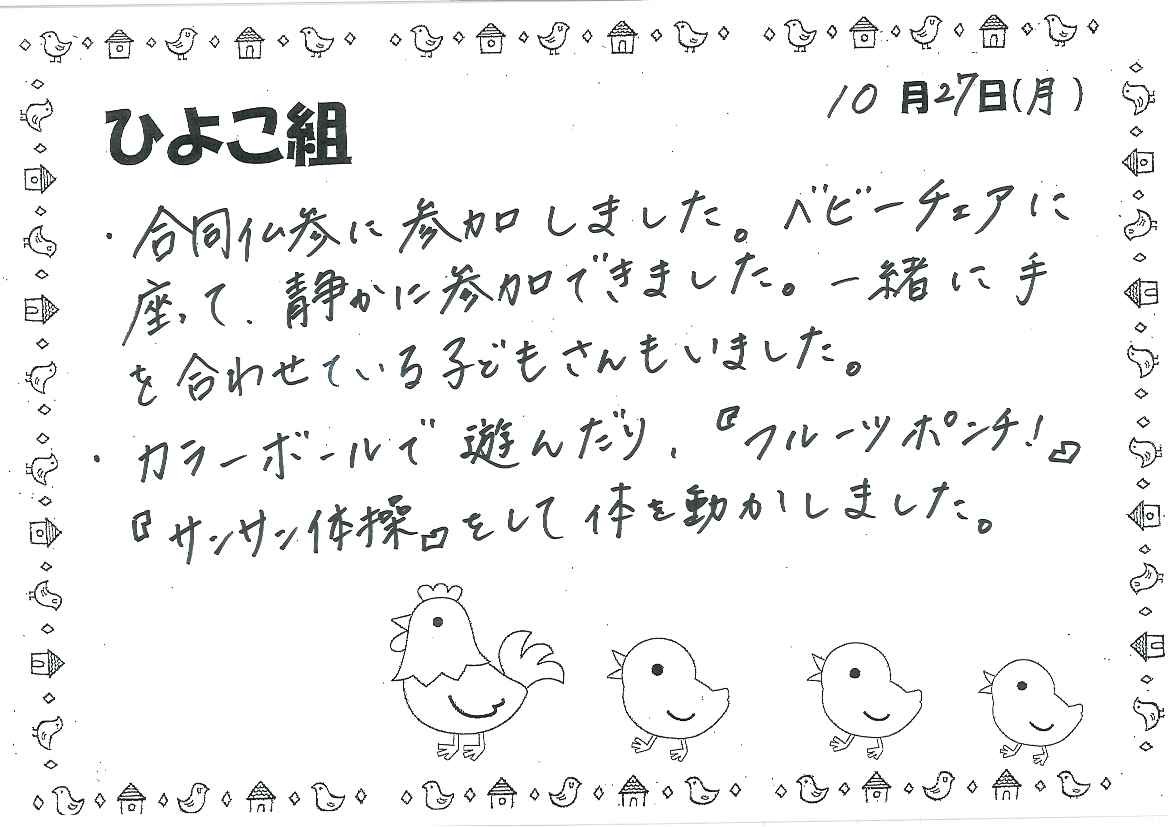 10月27日(月)
ひよこ組
・合同仏参に参加しました。ベビーチェアに
座って、静かに参加できました。一緒に手
を合わせている子どもさんもいました。
・カラーボールで遊んだり、『フルーツポンチ!』
『サンサン体操』をして体を動かしました。